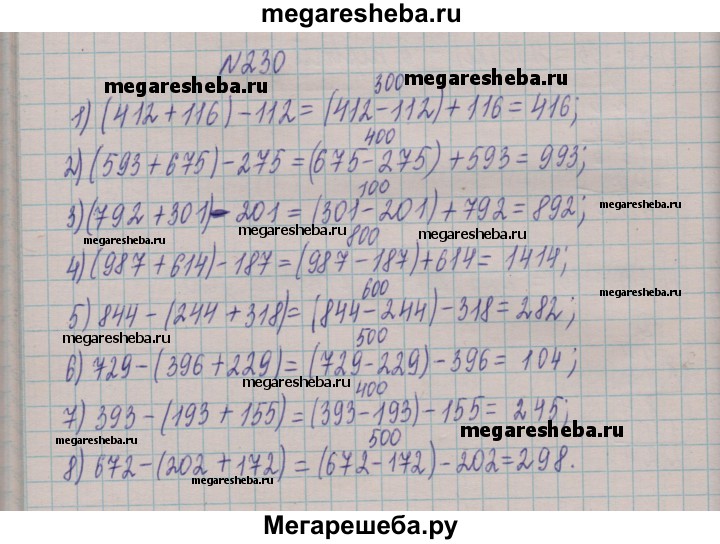 megaresheba.ru
№230
megaresheba.ru
300
megaresheba.ru
1) (412+116)-112=(412-112)+116=416;
400
2) (593+675)-275=(675-275)+593=993;
100
3) (792+301)-201=(301-201)+792=892;
megaresheba.ru
megaresheba.ru
megaresheba.ru
megaresheba.ru
800
4) (987+614)-187=(987-187)+614=1414;
600
megaresheba.ru
5) 844-(244+318)=(844-244)-318=282;
megaresheba.ru
500
6) 729-(396+229)=(729-229)-396=104;
megaresheba.ru
400
7) 393-(193+155)=(393-193)-155=245;
megaresheba.ru
500
megaresheba.ru
8) 672-(202+172)=(672-172)-202=298.
megaresheba.ru
Мегарешеба.ру